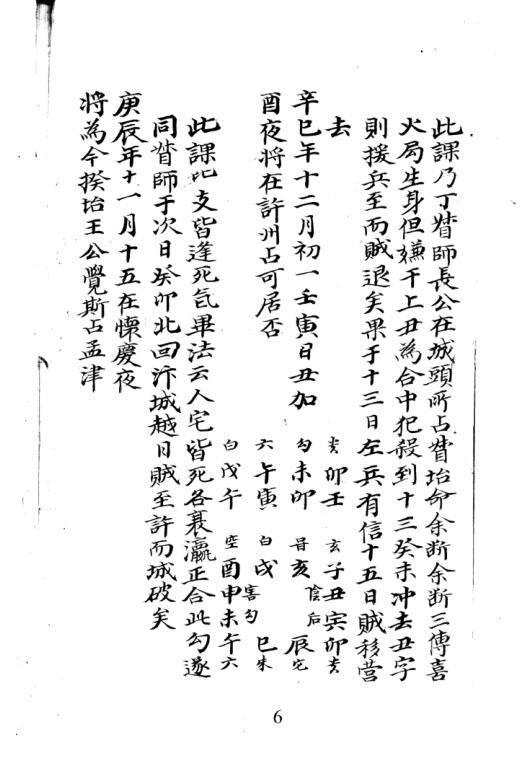 此課乃丁督師長公在城頭所占督治命余斷余斷三傳喜
火局生身但嫌干上丑為合中犯殺到十三癸未冲去丑字
則援兵至而賊退矣果于十三日左兵有信十五日賊移營
去
辛巳年十二月初一壬寅日丑加
酉夜將在許州占可居否
贵卯壬 玄子丑寅卯贵
陰后
勾未卯 亥 辰
六午寅 白戌 巳朱
白戊午 空酉申未午六
害勾
此課比支皆逢死氣畢法云人宅皆死各衰瀛正合此勾遂
同督師于次日癸卯北回汴城越月賊至許而城破矣
庚辰年十一月十五在懷慶夜
將為今揆治王公覺斯占孟津
6